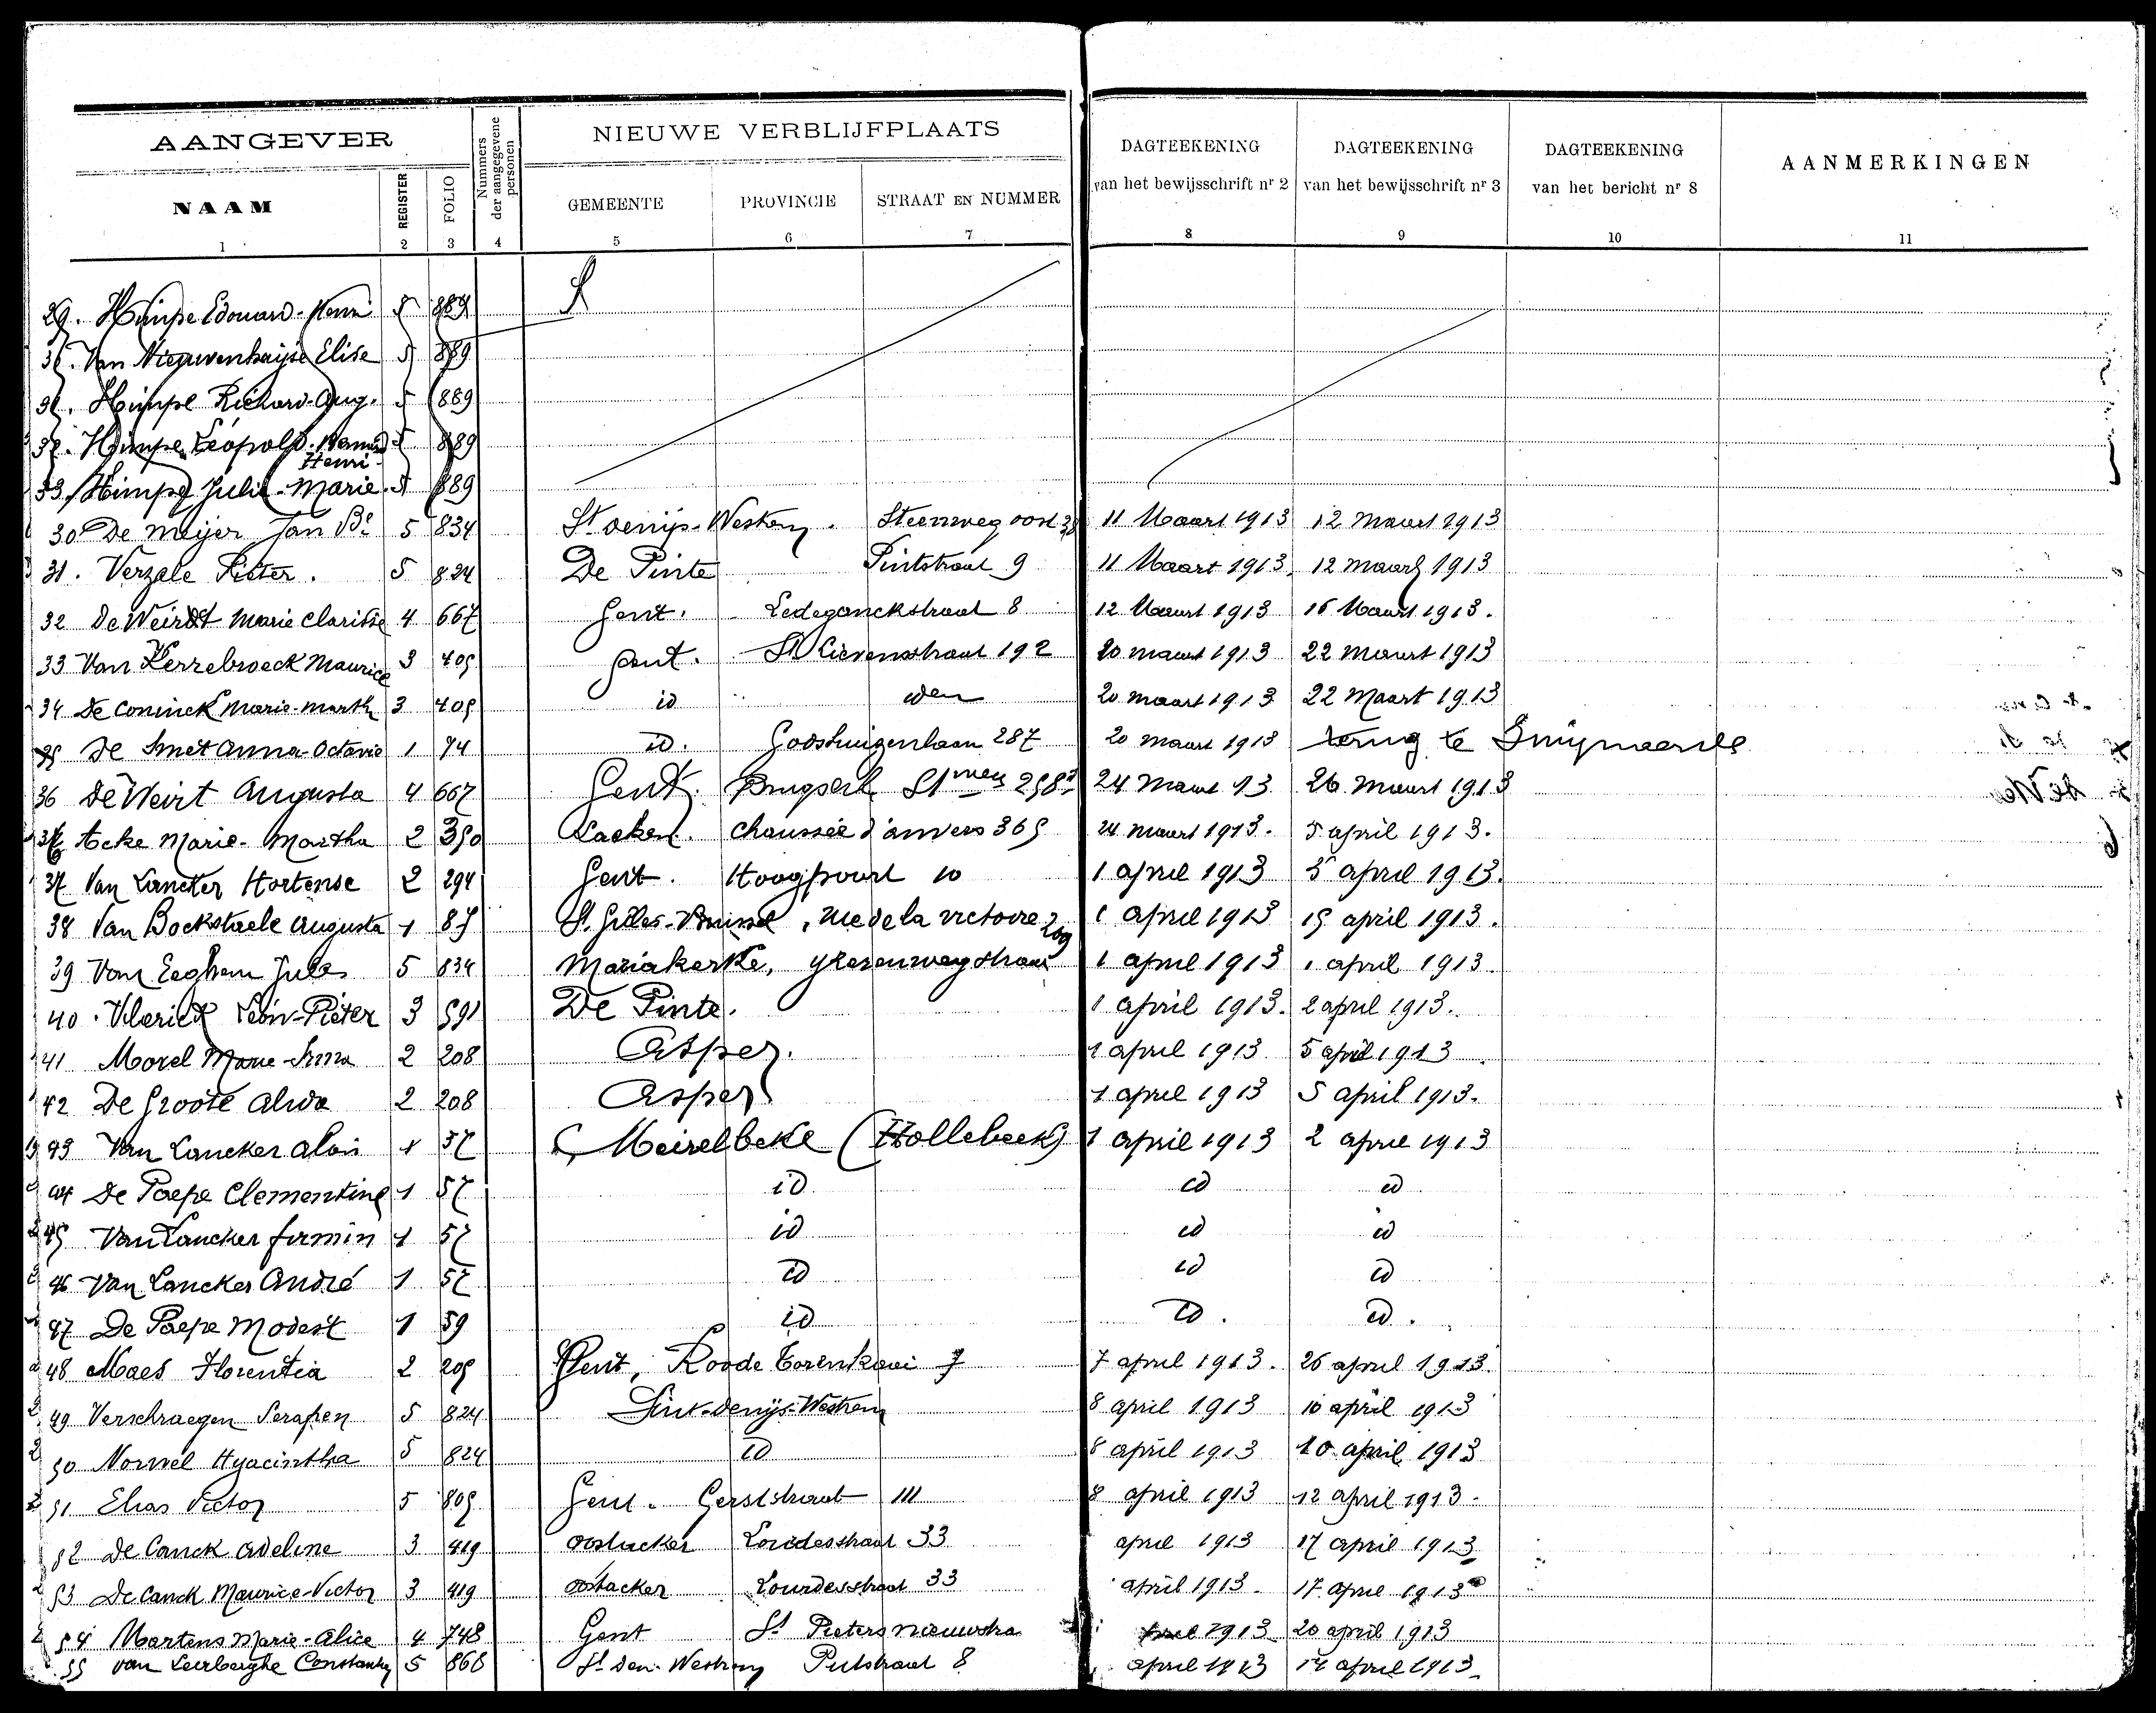 AANGEVER
Nummers der aangegevene personen
NIEUWE VERBLIJFPLAATS
DAGTEEKENING van het bewijsschrift nr 2
DAGTEEKENING van het bewijsschrift nr 3
DAGTEEKENING van het bericht nr 8
AANMERKINGEN
NAAM REGISTER FOLIO GEMEENTE PROVINCIE STRAAT EN NUMMER
1 2 3 4 5 6 7 8 9 10 11
29. Himpe Edouard-Henri 5 889
Van Nieuwenhuijse Elise 5 889
Himpe Richard-Aug. 5 889
Himpe Léopold- Henri 5 889
33 Himpe Julie-Marie 5 889
30 De Meijer Jan Bte 5 834 St Denijs-Westrem. Steenweg oost 38 11 Maart 1913 12 maart 1913
31. Verzele Pieter. 5 824 De Pinte Pintstraat 9 11 Maart 1913. 12 maart 1913
32 De Weirdt Marie Clarisse 4 667 Gent. Ledeganckstraat 8 12 Maart 1913 16 Maart 1913.
33 Van Kerrebroeck Maurice 3 405 Gent. St Lievenstraat 192 20 maart 1913 22 maart 1913
34 De Coninck Marie-Marth 3 405 id idem 20 maart 1913 22 Maart 1913
35 De Smet Anna-Octavie 1 74 id. Godshuizenlaan 287 20 maart 1913 terug te Swijnaerde
36 De Weirt Augusta 4 667 Gent. Brugsche Stweg 258 24 Maart 13 26 maart 1913
Acke Marie-Martha 2 350 Laeken. Chaussée d'anvers 365 24 maart 1913. 5 april 1913.
37 Van Lancker Hortense 2 294 Gent. Hoogpoort 10 1 april 1913 5 april 1913.
38 Van Bockstaele Augusta 1 85 St Gilles-Brussel, rue de la victoire 209 1 april 1913 15 april 1913.
39 Van Eeghem Jules 5 834 Mariakerke, ijzerenwegstraat 1 april 1913 1 april 1913.
40. Vlerick Léon-Pieter 3 591 De Pinte. 1 april 1913. 2 april 1913.
41 Morel Marie-Irma 2 208 Asper. 1 april 1913 5 april 1913
42 De Groote Alida 2 208 Asper 1 april 1913 5 april 1913.
43 Van Lancker Aloïs 1 57 Meirelbeke (Hollebeek) 1 april 1913 2 april 1913
44 De Paepe Clementine 1 57 id id id
45 Van Lancker firmin 1 57 id id id
46 Van Lancker André 1 57 id id id
47 De Paepe Modest 1 59 id id. id.
48 Maes Florentia 2 205 Gent, Roode Torenkaai 7 7 april 1913. 26 april 1913.
49 Verschraegen Serafien 5 824 Sint-Denijs-Westrem 8 april 1913 10 april 1913
50 Norvel Hyacintha 5 824 id 8 april 1913 10 april 1913
51 Elias Victor 5 805 Gent. Gerststraat 111 8 april 1913 12 april 1913.
52 De Canck Adeline 3 419 Oostacker Lourdesstraat 33 april 1913 17 april 1913
53 De Canck Maurice-Victor 3 419 Oostacker Lourdesstraat 33 april 1913. 17 april 1913
54 Martens Marie-Alice 4 748 Gent St Pieters nieuwstra april 1913 20 april 1913
55 Van Leerberghe 5 868 St Den. Westrem Putstraat 8 april 1913 14 april 1913